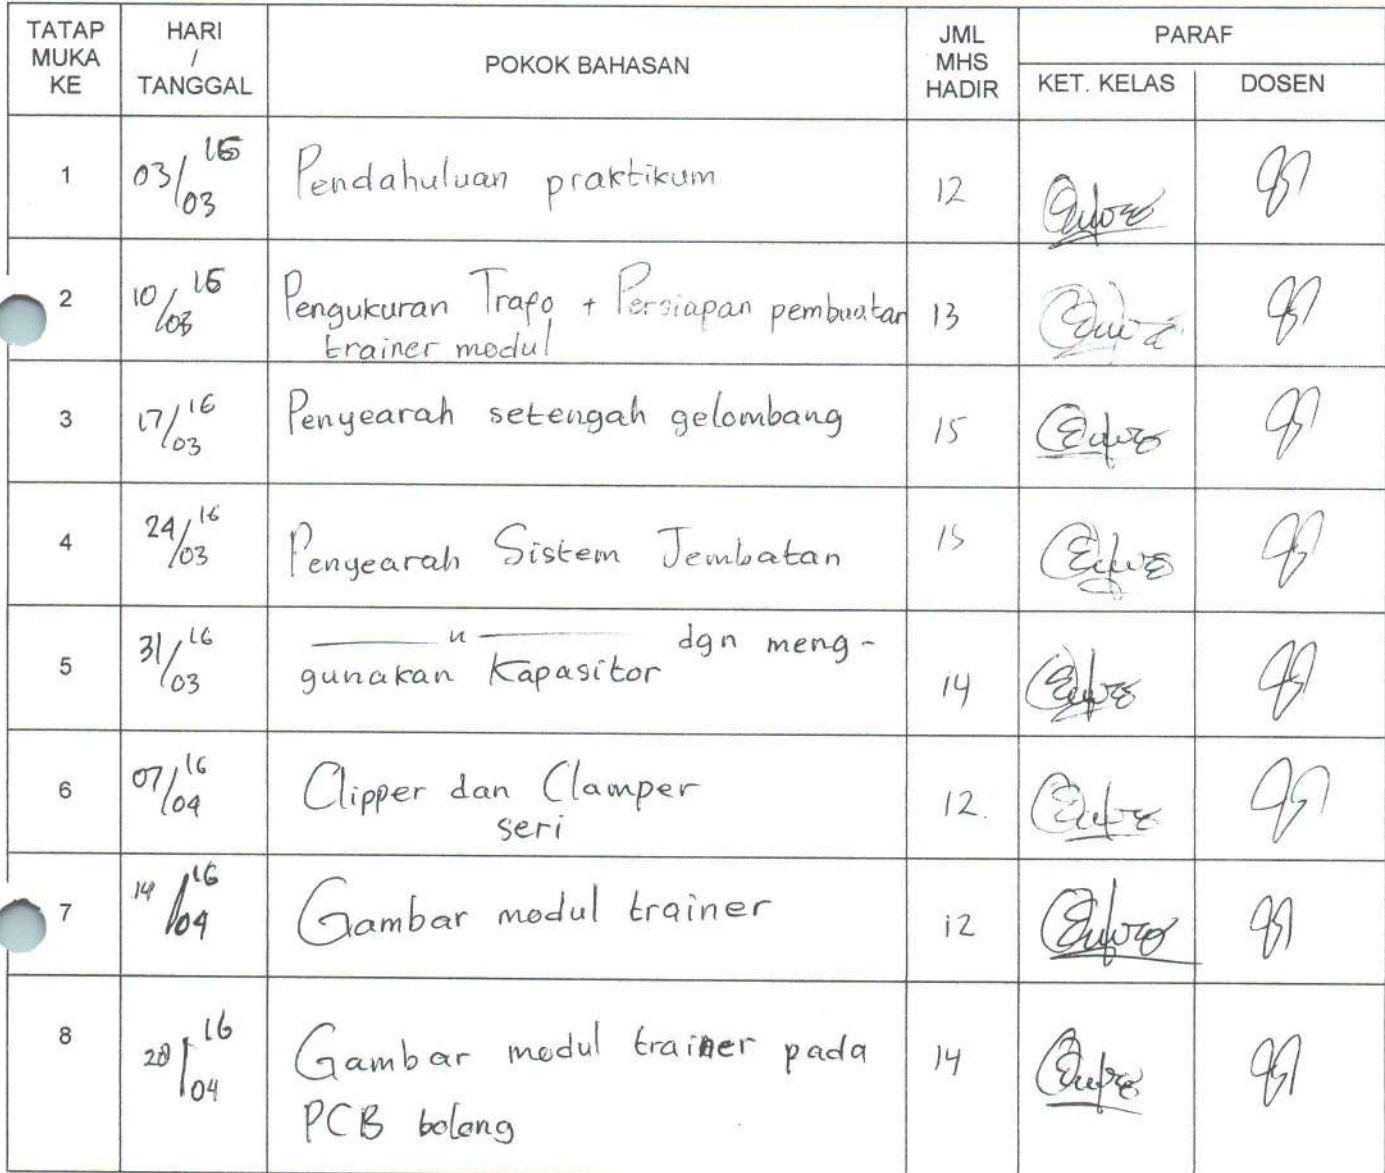 TATAP MUKA KE
HARI / TANGGAL
POKOK BAHASAN
JML MHS HADIR
PARAF
KET. KELAS
DOSEN
1
03/03 16
Pendahuluan praktikum
12
2
10/03 16
Pengukuran Trafo + Persiapan pembuatan
trainer modul
13
3
17/03 16
Penyearah setengah gelombang
15
4
24/03 16
Penyearah Sistem Jembatan
15
5
31/03 16
——— " ——— dgn meng-
gunakan Kapasitor
14
6
07/04 16
Clipper dan Clamper
seri
12.
7
14/04 16
Gambar modul trainer
12
8
/04 16
Gambar modul trainer pada
PCB bolong
14